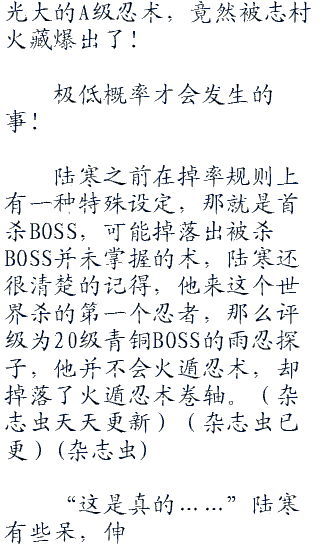 光大的A级忍术，竟然被志村
火藏爆出了！
极低概率才会发生的
事！
陆寒之前在掉率规则上
有一种特殊设定，那就是首
杀BOSS，可能掉落出被杀
BOSS并未掌握的术，陆寒还
很清楚的记得，他来这个世
界杀的第一个忍者，那么评
级为20级青铜BOSS的雨忍探
子，他并不会火遁忍术，却
掉落了火遁忍术卷轴。（杂
志虫天天更新）（杂志虫已
更）(杂志虫)
“这是真的……”陆寒
有些呆，伸